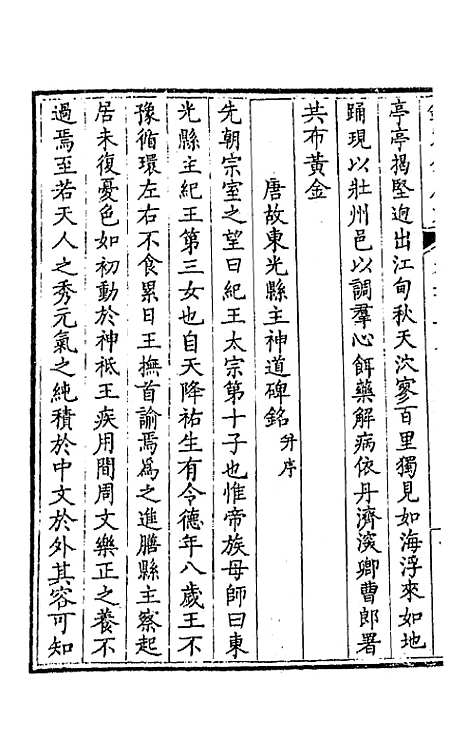 亭亭揭堅迥出江甸秋天泬寥百里獨見如海浮來如地
踊現以壯州邑以調羣心餌藥解病依丹濟溪卿曹郎署
共布黃金
唐故東光縣主神道碑銘并序
先朝宗室之望曰紀王太宗第十子也惟帝族母師曰東
光縣主紀王第三女也自天降祐生有令德年八歲王不
豫循環左右不食累日王撫首諭焉爲之進膳縣主察起
居未復憂色如初動於神祇王疾用間周文樂正之養不
過焉至若天人之秀元氣之純積於中文於外其容可知